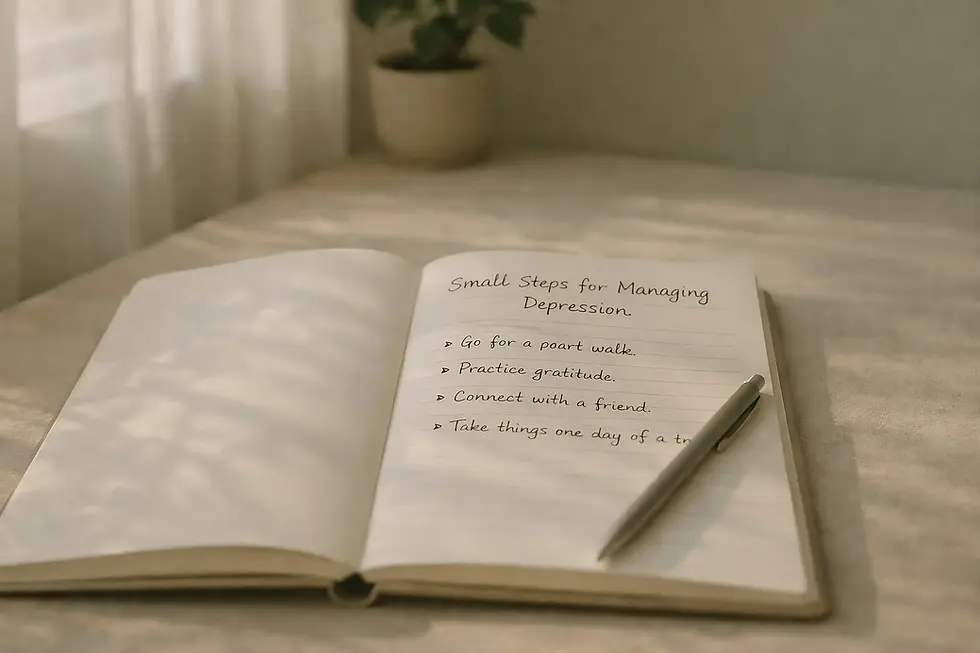 Small Steps for Managing
Depression.
➢ Go for a poart walk.
➢ Practice gratitude.
➢ Connect with a friend.
➢ Take things one day of a